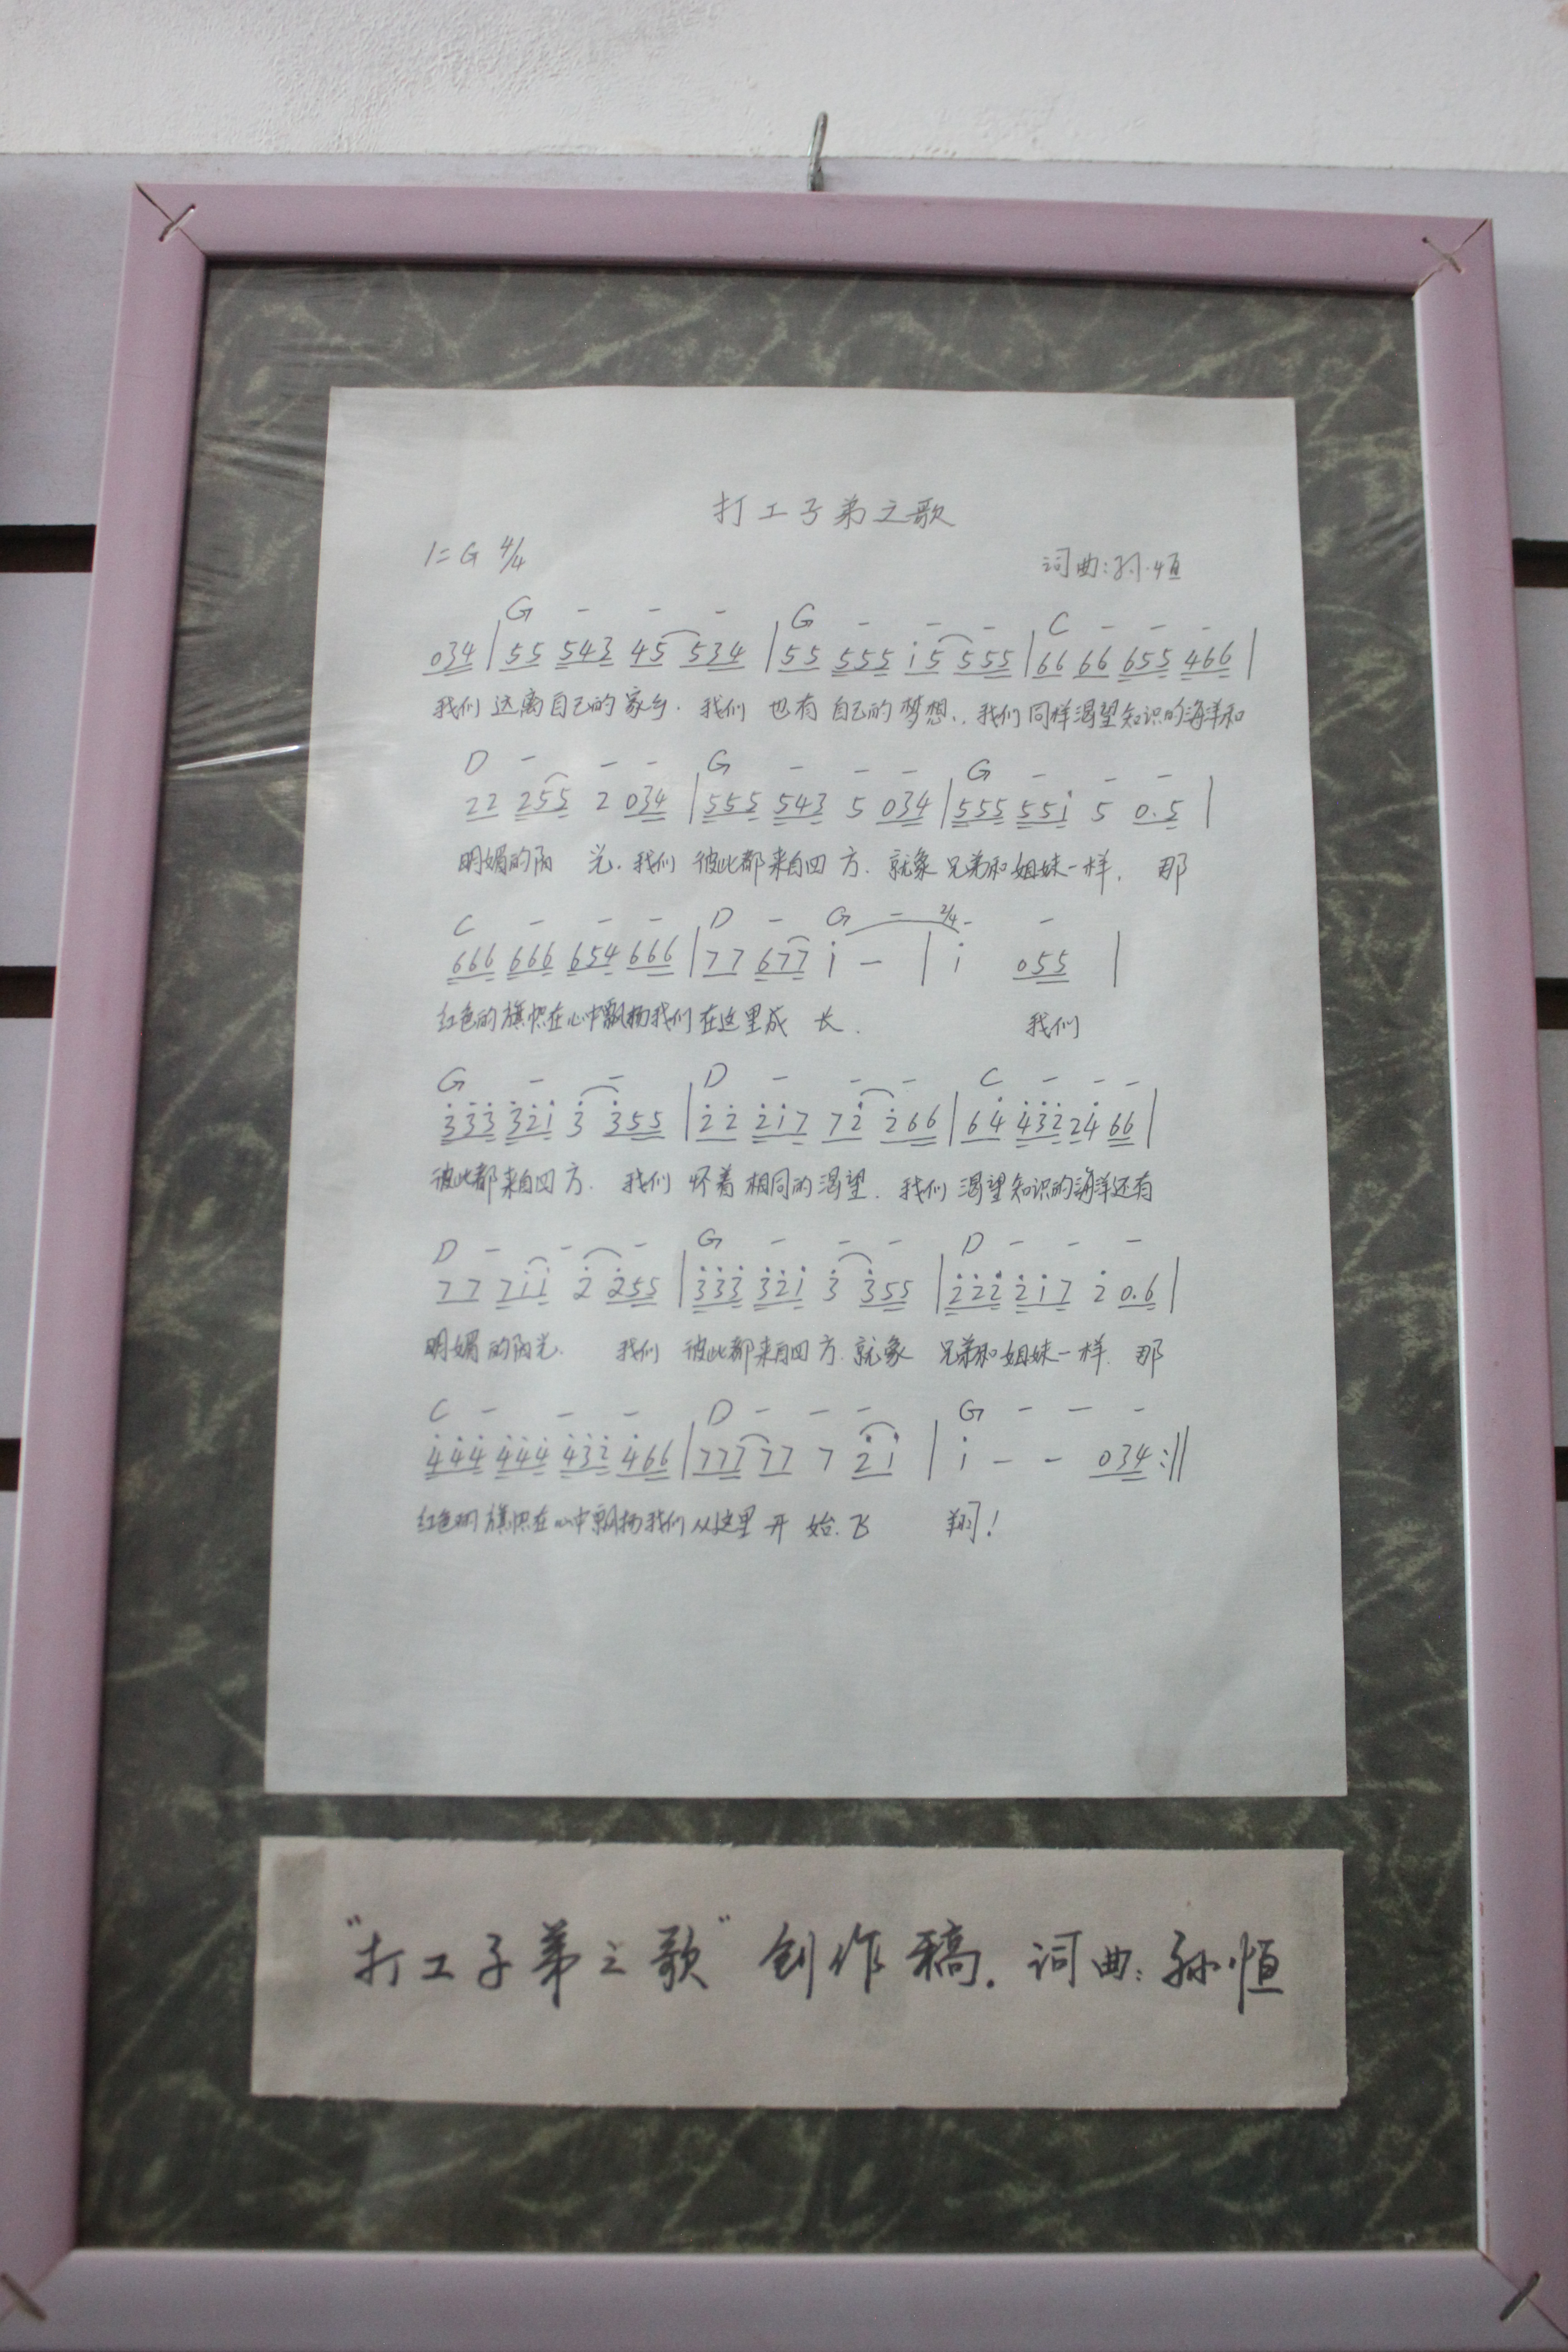 打工子弟之歌
1=G 4/4 词曲:孙恒
G - - - G - - - C - - -
034 | 55 543 45 534 | 55 555 i5 555 | 66 66 655 466 |
我们 远离自己的家乡. 我们 也有 自己的 梦想.. 我们同样渴望知识的海洋和
D - - - G - - - G - - -
22 255 2 034 | 555 543 5 034 | 555 55i 5 0.5 |
明媚的阳 光. 我们 彼此都来自四方. 就象 兄弟和姐妹一样. 那
C - - - D - G - 2/4 - -
666 666 654 666 | 77 677 i - | i 055 |
红色的旗帜在心中飘扬我们在这里成 长. 我们
G - - D - - - C - - -
3̇3̇3̇ 3̇2̇i 3̇ 3̇55 | 2̇2̇ 2̇i7 72̇ 2̇66 | 64̇ 4̇3̇2̇ 24̇ 66 |
彼此都来自四方. 我们 怀着相同的渴望. 我们 渴望知识的海洋还有
D - - - G - - - D - - -
77 7ii 2̇ 2̇55 | 3̇3̇3̇ 3̇2̇i 3̇ 3̇55 | 2̇2̇2̇ 2̇i7 2̇ 0.6 |
明媚的阳光. 我们 彼此都来自四方. 就象 兄弟和姐妹一样. 那
C - - - D - - - G - - -
4̇4̇4̇ 4̇4̇4̇ 4̇3̇2̇ 4̇66 | 777 77 7 2̇i | i - - 034 :||
红色的旗帜在心中飘扬我们从这里开 始.飞 翔!
"打工子弟之歌"创作稿. 词曲:孙恒